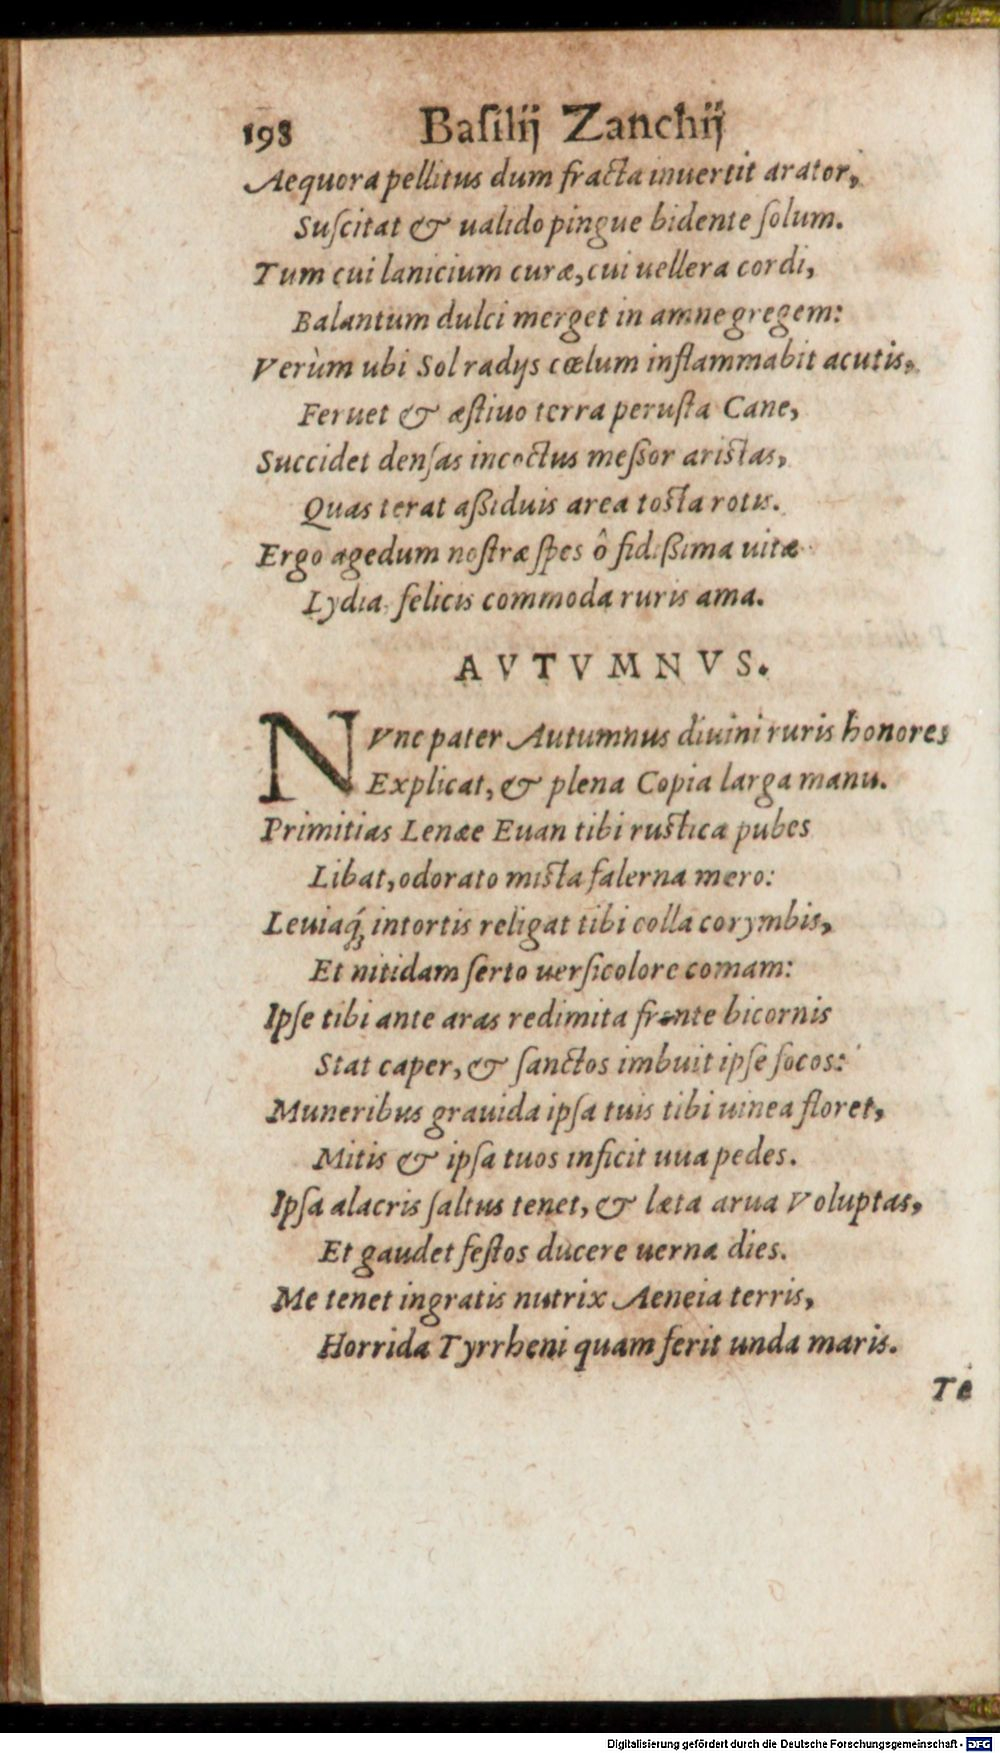 198 Baſilij Zanchij
Aequora pellitus dum fracta inuertit arator,
Suſcitat & ualido pingue bidente ſolum.
Tum cui lanicium curæ, cui uellera cordi,
Balantum dulci merget in amne gregem:
Verùm ubi Sol radijs cœlum inflammabit acutis,
Feruet & æſtiuo terra peruſta Cane,
Succidet denſas incoctus meſſor ariſtas,
Quas terat aſſiduis area toſta rotis.
Ergo agedum noſtræ ſpes ô fidiſſima uitæ
Lydia felicis commoda ruris ama.
AVTVMNVS.
NVnc pater Autumnus diuini ruris honores
Explicat, & plena Copia larga manu.
Primitias Lenæe Euan tibi ruſtica pubes
Libat, odorato miſta falerna mero:
Leuiaq́; intortis religat tibi colla corymbis,
Et nitidam ſerto uerſicolore comam:
Ipſe tibi ante aras redimita fronte bicornis
Stat caper, & ſanctos imbuit ipſe focos:
Muneribus grauida ipſa tuis tibi uinea floret,
Mitis & ipſa tuos inficit uua pedes.
Ipſa alacris ſaltus tenet, & læta arua Voluptas,
Et gaudet feſtos ducere uerna dies.
Me tenet ingratis nutrix Aeneia terris,
Horrida Tyrrheni quam ferit unda maris.
Te
Digitalisierung gefördert durch die Deutsche Forschungsgemeinschaft - DFG